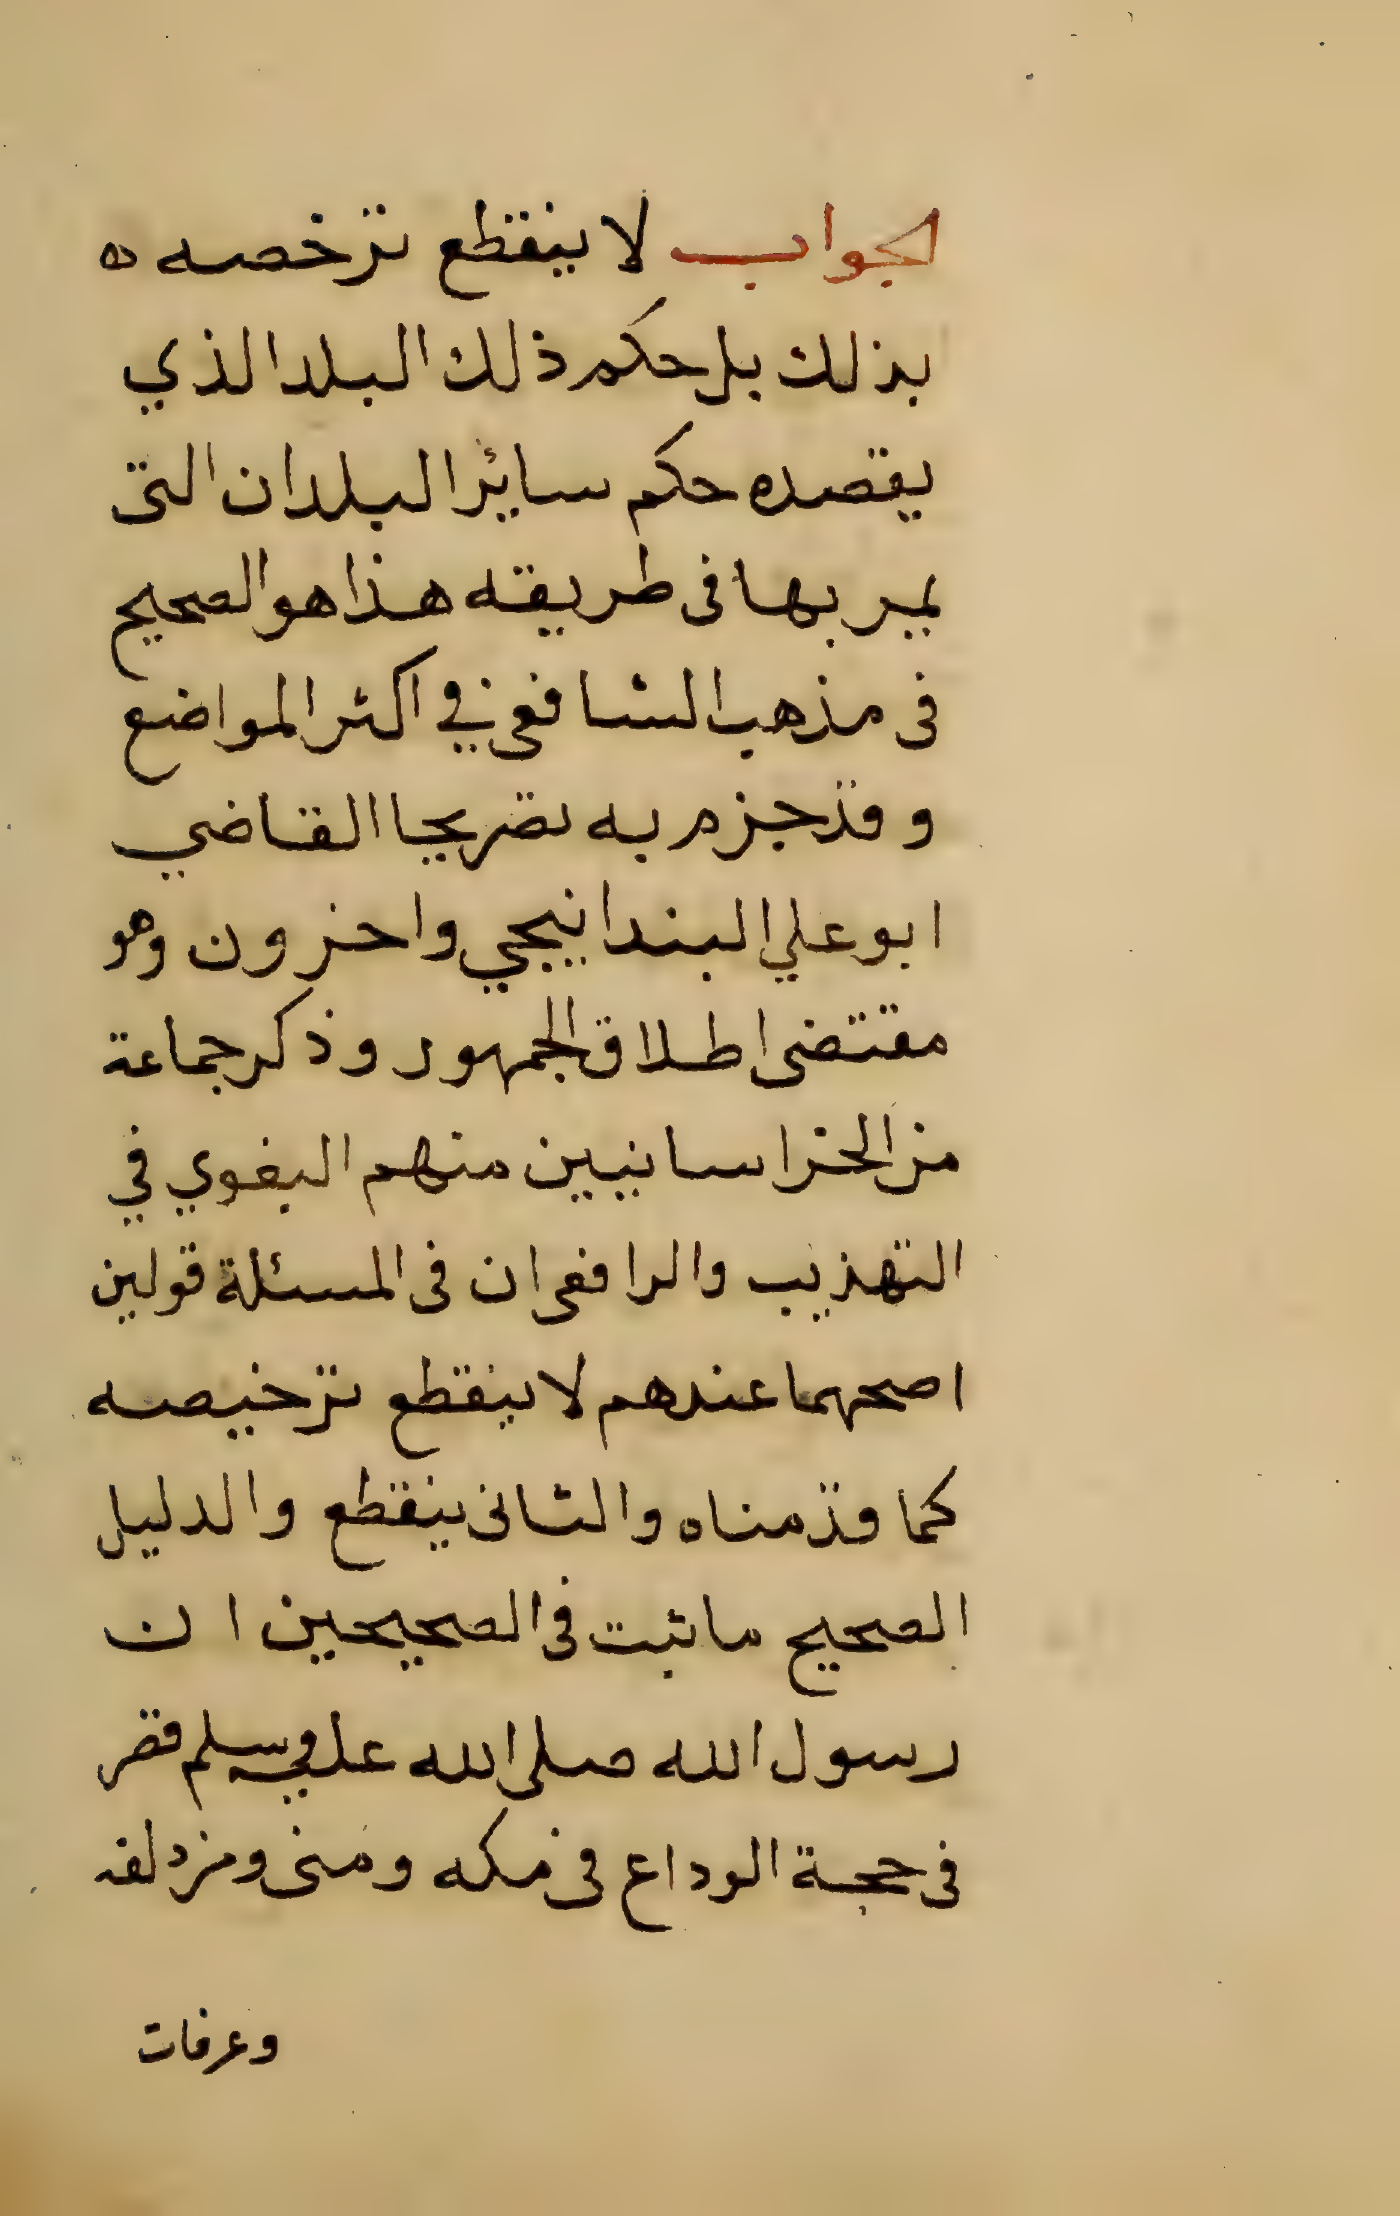 الجواب لا ينقطع ترخصه ه
بذلك بل حكم ذلك البلد الذي
يقصده حكم سائر البلدان التى
يمر بها فى طريقه هذا هو الصحيح
فى مذهب الشافعي في اكثر المواضع
وقد جزم به تصريحا القاضي
ابو علي البندانيجي واخرون وهو
مقتضى اطلاق الجمهور وذكر جماعة
من الخراسانيين منهم البغوي في
التهذيب والرافعى ان فى المسئلة قولين
اصحهما عندهم لا ينقطع ترخيصه
كما قدمناه والثانى ينقطع والدليل
الصحيح ما ثبت فى الصحيحين ان
رسول الله صلى الله عليه وسلم قصر
فى حجة الوداع فى مكه ومنى ومزدلفه
وعرفات